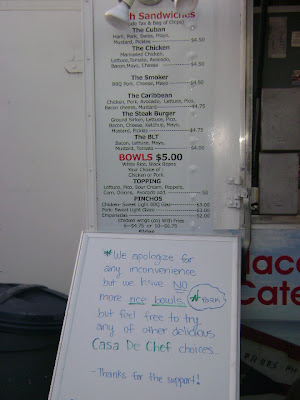 h Sandwiches
The Cuban
Ham, Pork, Swiss, Mayo,
Mustard, Pickles $4.50
The Chicken
Marinated Chicken,
Lettuce, Tomato, Avocado,
Bacon, Mayo, Cheese $4.50
The Smoker
BBQ Pork, Cheese, Mayo $4.50
The Caribbean
Chicken, Pork, Avocado, Lettuce, Pico,
Bacon, cheese, Mustard $4.75
The Steak Burger
Ground Sirloin, Lettuce, Pico,
Bacon, Cheese, Ketchup, Mayo,
Mustard, Pickles $4.75
The BLT
Bacon, Lettuce, Mayo,
Mustard, Tomato $4.50
BOWLS $5.00
White Rice, Black Beans
Your Choice of:
Chicken or Pork
TOPPING
Lettuce, Pico, Sour Cream, Peppers,
Corn, Onions, Avocado add 50
PINCHOS
Empanadas
#We apologize for
any inconvenience
but we have NO
more rice bowls, #
but feel free to try
any of other delicious
Casa De Chef choices...
-Thanks for the support!
aco
Cate